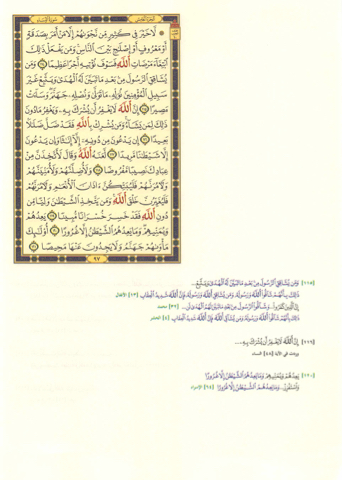 لَّا خَيْرَ فِي كَثِيرٍ مِّن نَّجْوَىٰهُمْ إِلَّا مَنْ أَمَرَ بِصَدَقَةٍ
أَوْ مَعْرُوفٍ أَوْ إِصْلَٰحٍۭ بَيْنَ ٱلنَّاسِ وَمَن يَفْعَلْ ذَٰلِكَ
ٱبْتِغَآءَ مَرْضَاتِ ٱللَّهِ فَسَوْفَ نُؤْتِيهِ أَجْرًا عَظِيمًا ١١٤ وَمَن
يُشَاقِقِ ٱلرَّسُولَ مِنۢ بَعْدِ مَا تَبَيَّنَ لَهُ ٱلْهُدَىٰ وَيَتَّبِعْ غَيْرَ
سَبِيلِ ٱلْمُؤْمِنِينَ نُوَلِّهِۦ مَا تَوَلَّىٰ وَنُصْلِهِۦ جَهَنَّمَ وَسَآءَتْ
مَصِيرًا ١١٥ إِنَّ ٱللَّهَ لَا يَغْفِرُ أَن يُشْرَكَ بِهِۦ وَيَغْفِرُ مَا دُونَ
ذَٰلِكَ لِمَن يَشَآءُ وَمَن يُشْرِكْ بِٱللَّهِ فَقَدْ ضَلَّ ضَلَٰلًۢا
بَعِيدًا ١١٦ إِن يَدْعُونَ مِن دُونِهِۦٓ إِلَّآ إِنَٰثًا وَإِن يَدْعُونَ
إِلَّا شَيْطَٰنًا مَّرِيدًا ١١٧ لَّعَنَهُ ٱللَّهُ وَقَالَ لَأَتَّخِذَنَّ مِنْ
عِبَادِكَ نَصِيبًا مَّفْرُوضًا ١١٨ وَلَأُضِلَّنَّهُمْ وَلَأُمَنِّيَنَّهُمْ
وَلَءَامُرَنَّهُمْ فَلَيُبَتِّكُنَّ ءَاذَانَ ٱلْأَنْعَٰمِ وَلَءَامُرَنَّهُمْ
فَلَيُغَيِّرُنَّ خَلْقَ ٱللَّهِ وَمَن يَتَّخِذِ ٱلشَّيْطَٰنَ وَلِيًّا مِّن
دُونِ ٱللَّهِ فَقَدْ خَسِرَ خُسْرَانًا مُّبِينًا ١١٩ يَعِدُهُمْ
وَيُمَنِّيهِمْ وَمَا يَعِدُهُمُ ٱلشَّيْطَٰنُ إِلَّا غُرُورًا ١٢٠ أُو۟لَٰٓئِكَ
مَأْوَىٰهُمْ جَهَنَّمُ وَلَا يَجِدُونَ عَنْهَا مَحِيصًا ١٢١
٩٧
[١١٥] وَمَن يُشَاقِقِ ٱلرَّسُولَ مِنۢ بَعْدِ مَا تَبَيَّنَ لَهُ ٱلْهُدَىٰ وَيَتَّبِعْ...
ذَٰلِكَ بِأَنَّهُمْ شَآقُّوا۟ ٱللَّهَ وَرَسُولَهُۥ وَمَن يُشَاقِقِ ٱللَّهَ وَرَسُولَهُۥ فَإِنَّ ٱللَّهَ شَدِيدُ ٱلْعِقَابِ [١٣] الأنفال
إِنَّ ٱلَّذِينَ كَفَرُوا۟... وَشَآقُّوا۟ ٱلرَّسُولَ مِنۢ بَعْدِ مَا تَبَيَّنَ لَهُمُ ٱلْهُدَىٰ لَن... [٣٢] محمد
ذَٰلِكَ بِأَنَّهُمْ شَآقُّوا۟ ٱللَّهَ وَرَسُولَهُۥ وَمَن يُشَآقِّ ٱللَّهَ فَإِنَّ ٱللَّهَ شَدِيدُ ٱلْعِقَابِ [٤] الحشر
إِنَّ ٱللَّهَ لَا يَغْفِرُ أَن يُشْرَكَ بِهِۦ....
وردت في الآية [٤٨] النساء
[١٢٠] يَعِدُهُمْ وَيُمَنِّيهِمْ وَمَا يَعِدُهُمُ ٱلشَّيْطَٰنُ إِلَّا غُرُورًا
وَٱسْتَفْزِزْ... وَمَا يَعِدُهُمُ ٱلشَّيْطَٰنُ إِلَّا غُرُورًا [٦٤] الإسراء